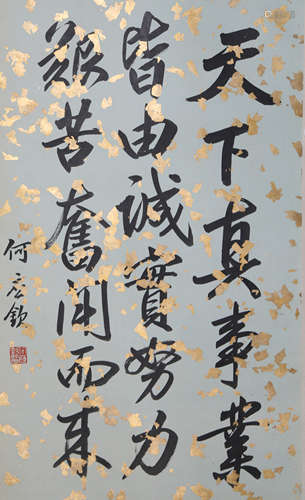 天下真事業
皆由誠實努力
艱苦奮鬥而來
何應欽